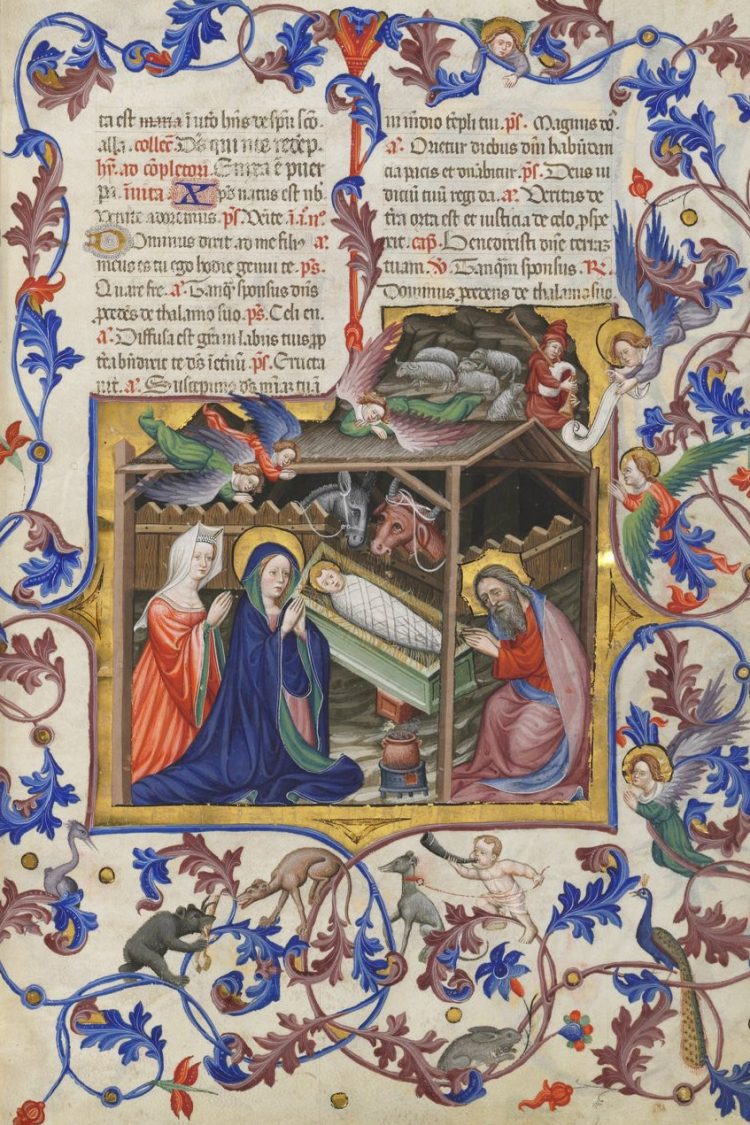 ta est maria ī vtō hn̄s de spū scō.
alla. collec̄. Ds̄ qui nre redēp
ad cōpletorī. Enixa ē puer
pa. īuita. Xp̄s natus est nb̄.
Venite adoremus. ps̄. Vēite.
Dominus dixit ad me filiꝰ a.
meus es tu ego hodie genui te. ps̄.
Quare fre. a. Tanq̄ sponsus dn̄s
p̄cedēs de thalamo suo. ps̄. Celi en.
a. Diffusa est grā ī labijs tuis p̱p
t̄ea bn̄dixit te ds̄ ī etnū. ps̄. Eructa
uit. a. Suscepimꝰ ds̄ mīam tuā
in medio tēpli tui. ps̄. Magnus dō.
a. Orietur diebus dn̄i habūdan
cia pacis et dn̄abitur. ps̄. Deus iu
diciū tuū regi da. a. Veritas de
tr̄a orta est et iusticia de celo p̱spe
xit. cap̄. Benedixisti dn̄e terrā
tuam. V̄. Tanq̄m sponsus. R̄.
Dominus p̱cedens de thalamo suo